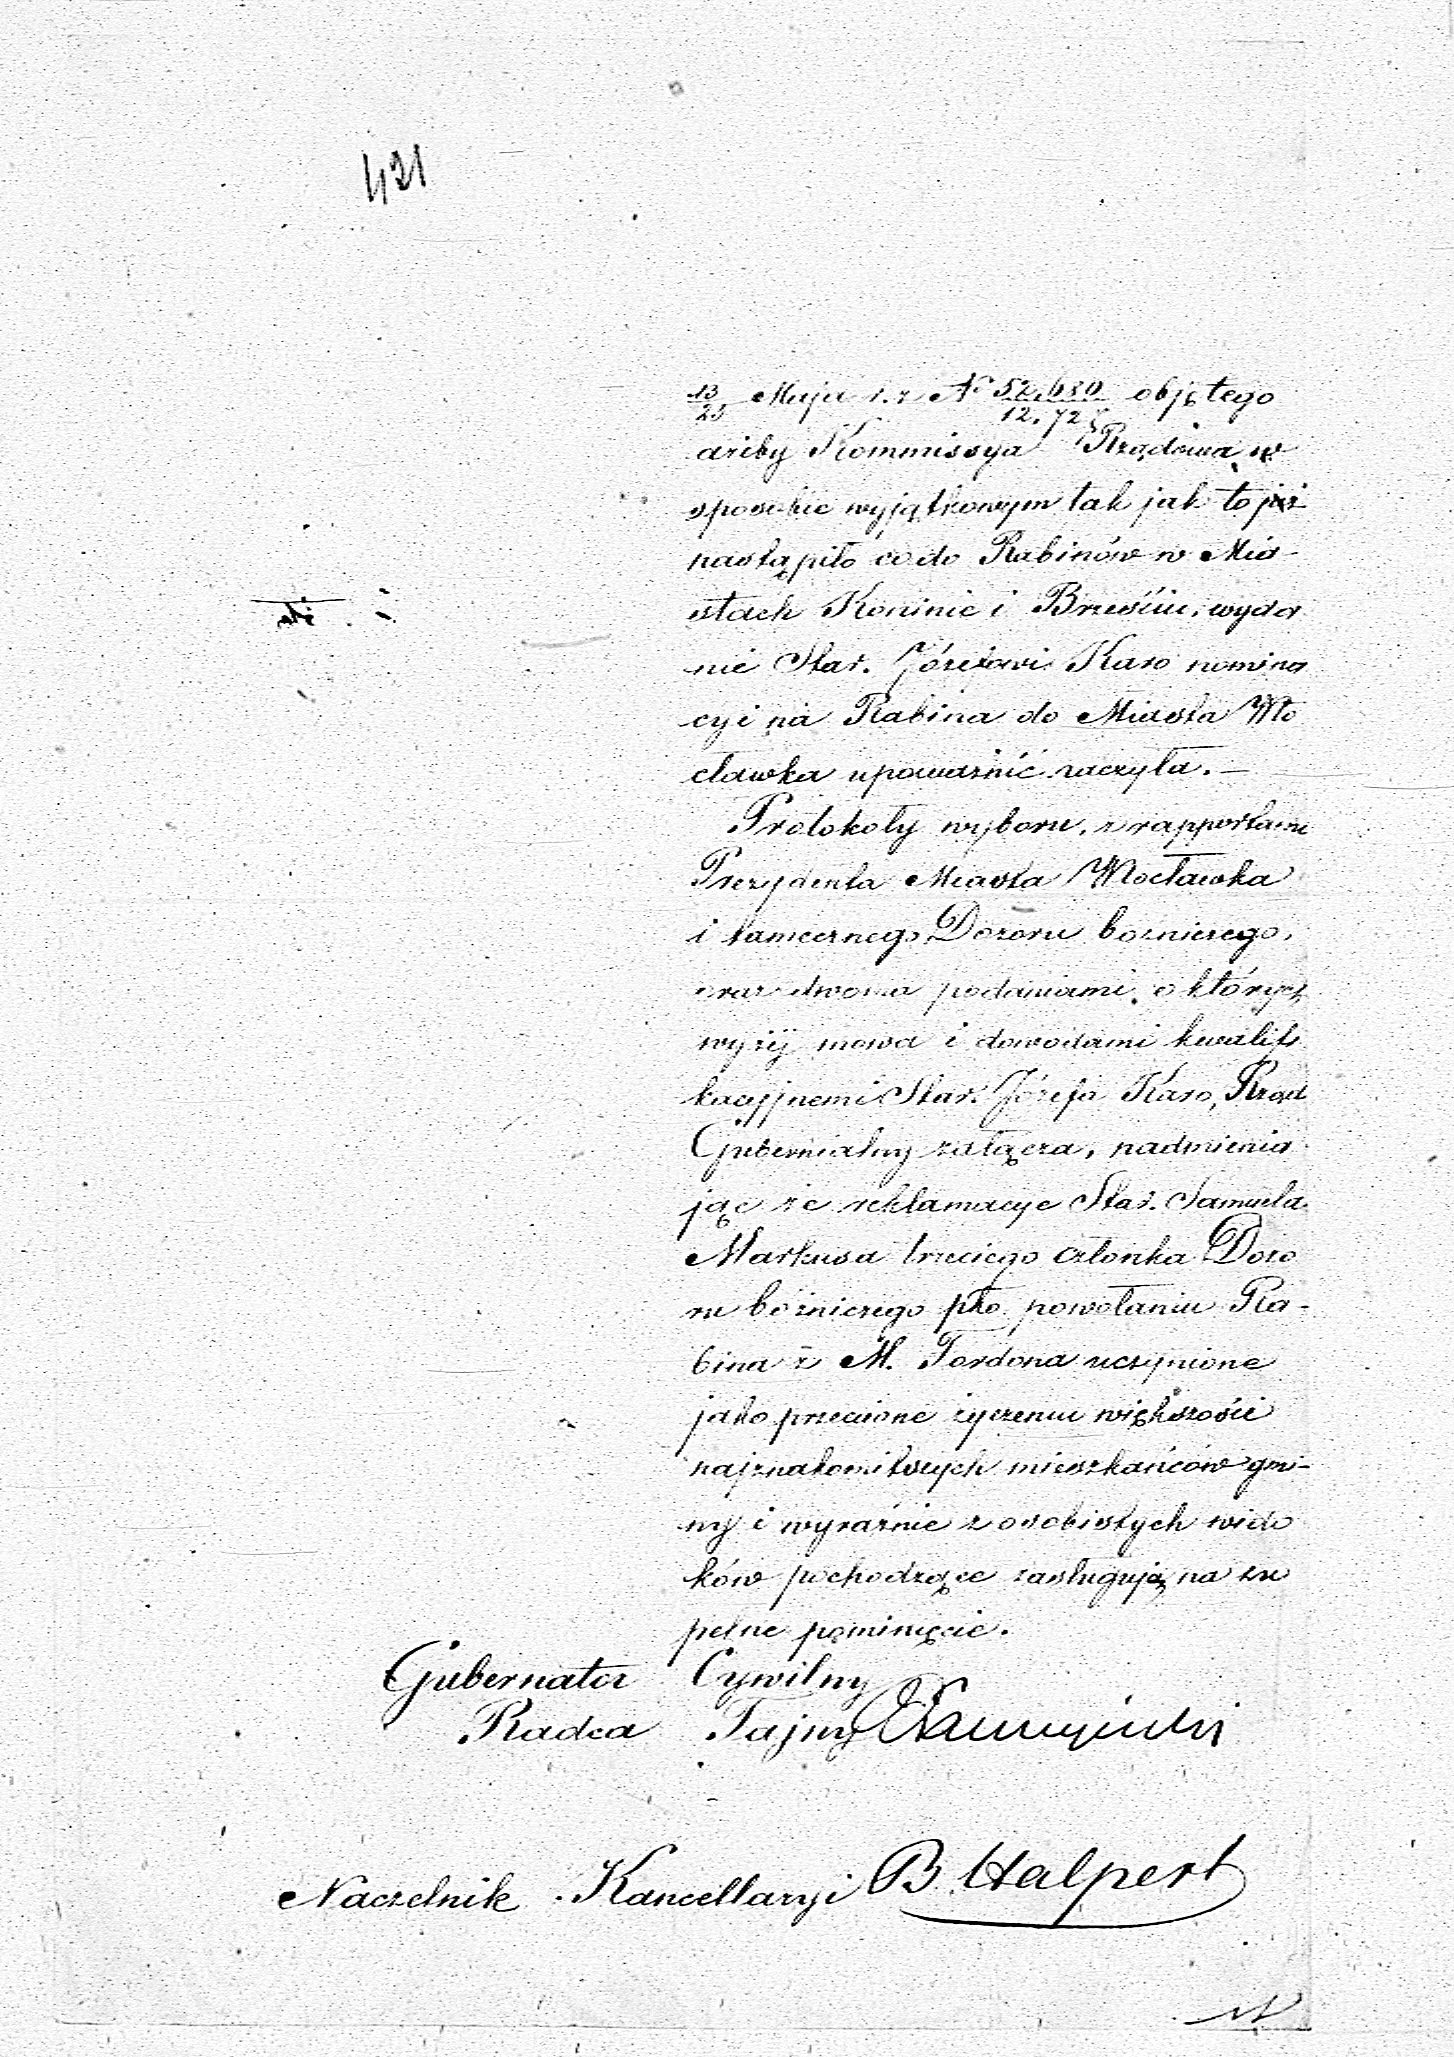 421
13/25 Maja r. z № 52,480/12.727 objętego
ażeby Kommissya Rządowa w
sposobie wyjątkowym tak jak to już
nastąpiło co do Rabinów w Mia-
stach Koninie i Brześciu, wyda
nie Star. Józefowi Karo nomina
cyi na Rabina do Miasta Wło
cławka upoważnić raczyła. —
Protokoły wyboru, z rapportami
Prezydenta Miasta Włocławka
i tamecznego Dozoru bożniczego,
oraz dwoma podaniami o których
wyżéj mowa i dowodami kwalifi
kacyjnemi Star. Józefa Karo, Rząd
Gubernialny załącza, nadmienia
jąc że reklamacye Star. Samuela
Markusa trzeciego członka Dozo
ru bożniczego pko powołaniu Ra-
bina z M. Fordona uczynione
jako przeciwne życzeniu większości
najznakomitszych mieszkańców gmi-
ny i wyraźnie z osobistych wido
ków pochodzące zasługują na zu
pełne pominięcie.
Gubernator Cywilny
Radca Tajny
Naczelnik Kancellaryi B. Halpert